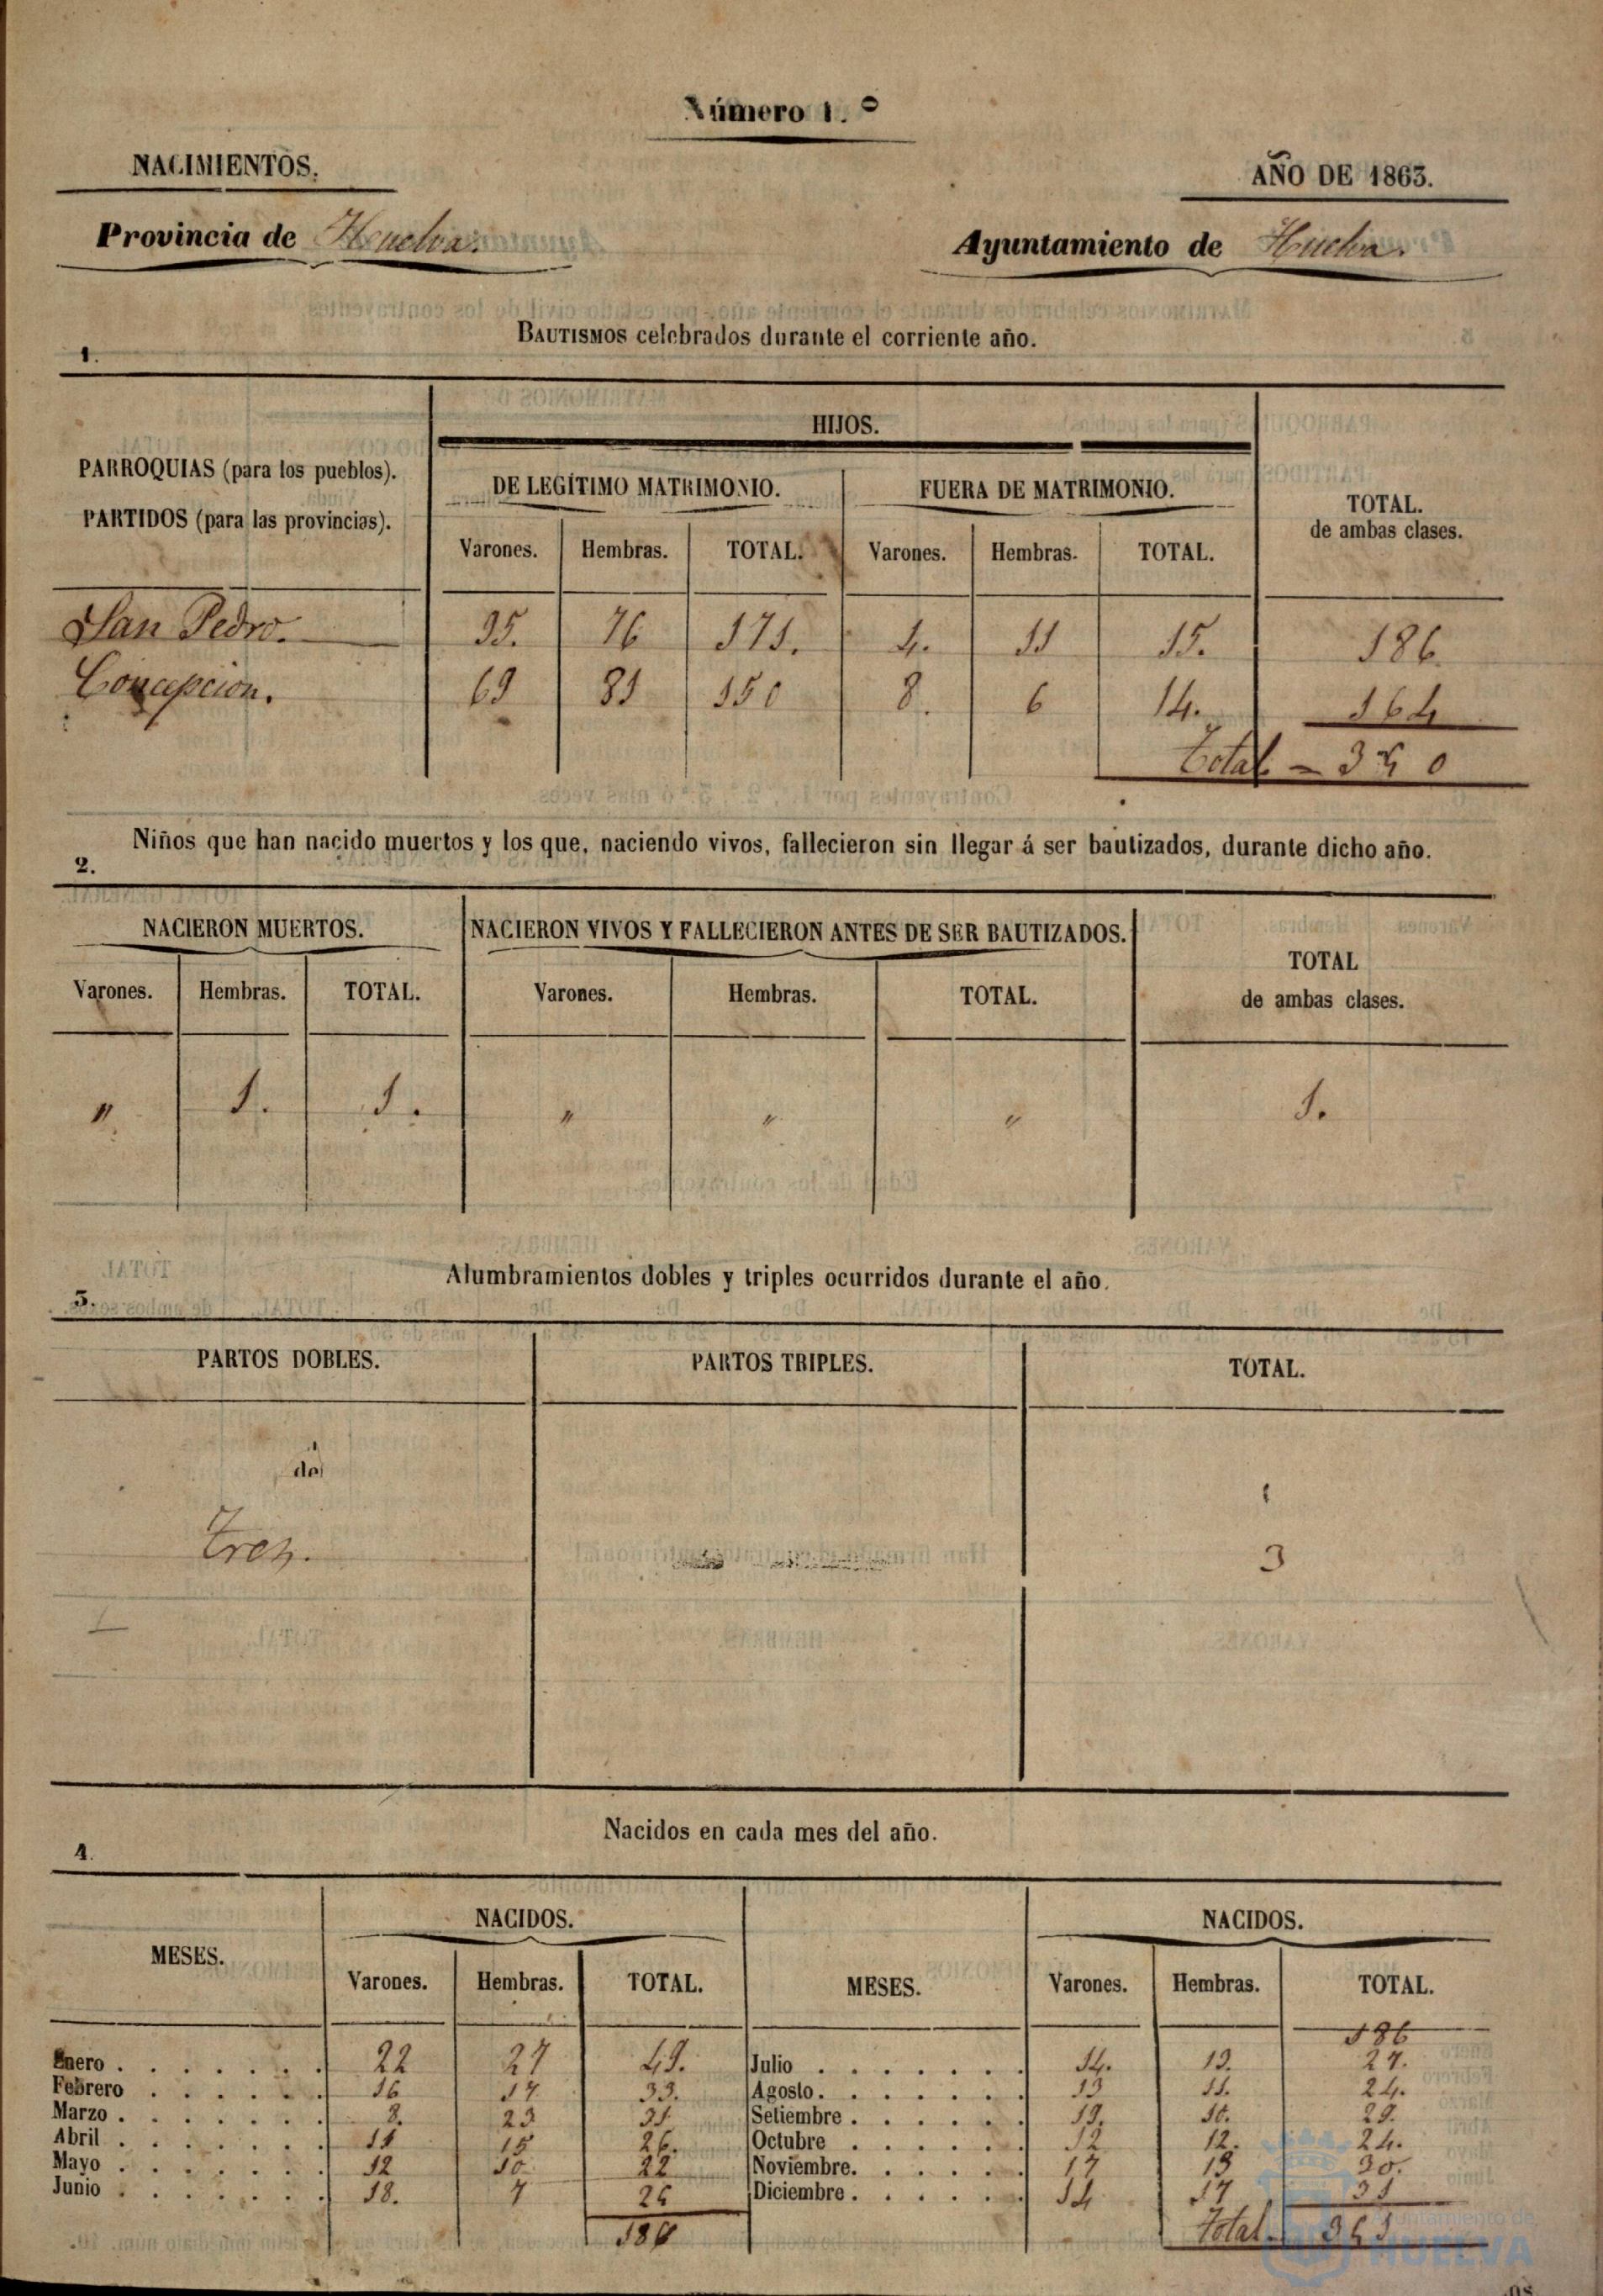 Número 1.º
NACIMIENTOS.
AÑO DE 1863.
Provincia de Huelva.
Ayuntamiento de Huelva.
BAUTISMOS celebrados durante el corriente año.
1.
HIJOS.
PARROQUIAS (para los pueblos).
PARTIDOS (para las provincias).
DE LEGÍTIMO MATRIMONIO.
FUERA DE MATRIMONIO.
TOTAL.
de ambas clases.
Varones. Hembras. TOTAL. Varones. Hembras. TOTAL.
San Pedro. 95. 76 171. 4. 11 15. 186.
Concepcion. 69 81 150 8. 6 14. 164
Total = 350
Niños que han nacido muertos y los que, naciendo vivos, fallecieron sin llegar á ser bautizados, durante dicho año.
2.
NACIERON MUERTOS.
NACIERON VIVOS Y FALLECIERON ANTES DE SER BAUTIZADOS.
TOTAL
de ambas clases.
Varones. Hembras. TOTAL. Varones. Hembras. TOTAL.
" 1. 1. " " " 1.
Alumbramientos dobles y triples ocurridos durante el año.
3.
PARTOS DOBLES. PARTOS TRIPLES. TOTAL.
Tres. 3
Nacidos en cada mes del año.
4.
MESES.
NACIDOS.
Varones. Hembras. TOTAL.
MESES.
NACIDOS.
Varones. Hembras. TOTAL.
186
Enero 22 27 49. Julio 14. 13. 27.
Febrero 16 17 33. Agosto. 13 11. 24.
Marzo 8. 23 31 Setiembre 19. 10. 29.
Abril 11 15 26. Octubre 12 12. 24.
Mayo 12 10 22 Noviembre. 17 13 30.
Junio 18. 7 25 Diciembre 14 17 31
186 Total. 351
Ayuntamiento de
HUELVA